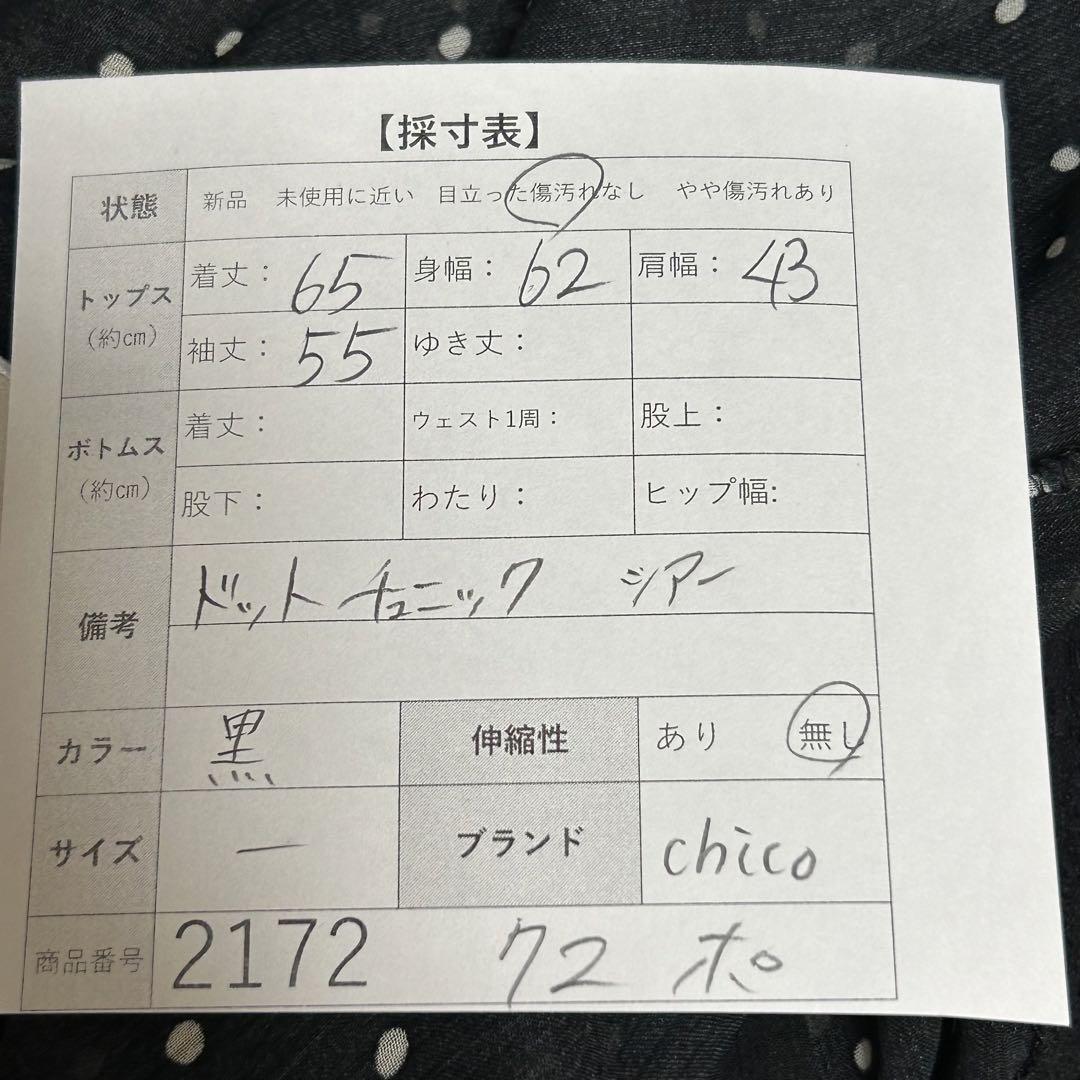 【採寸表】
状態 新品 未使用に近い 目立った傷汚れなし やや傷汚れあり
トップス (約cm) 着丈： 65 身幅： 62 肩幅： 43
袖丈： 55 ゆき丈：
ボトムス (約cm) 着丈： ウェスト1周： 股上：
股下： わたり： ヒップ幅:
備考 ドットチュニック シアー
カラー 黒 伸縮性 あり 無し
サイズ ー ブランド chico
商品番号 2172 72 ポ